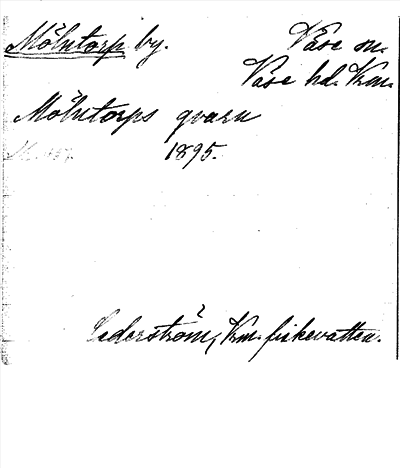 Mölntorp by. Väse sn.
Väse hd. Vrm.
Mölntorps qvarn
1895.
Cederström, Vrm. fiskevatten.